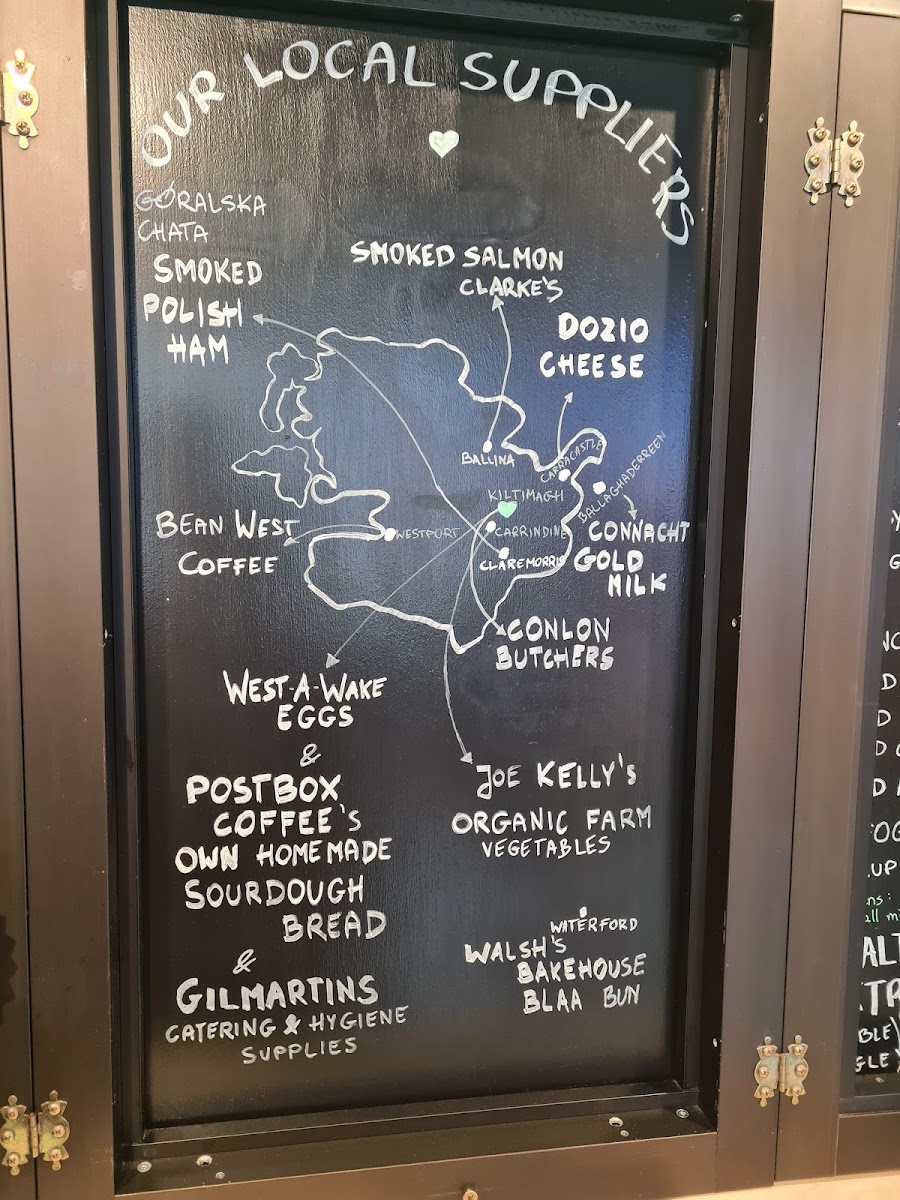 OUR LOCAL SUPPLIERS
GÓRALSKA
CHATA
SMOKED
POLISH
HAM
SMOKED SALMON
CLARKE'S
DOZIO
CHEESE
BALLINA
CARRACASTLE
BALLAGHADERREEN
KILTIMAGH
WESTPORT
CARRINDINE
CLAREMORRIS
BEAN WEST
COFFEE
CONNACHT
GOLD
MILK
CONLON
BUTCHERS
WEST-A-WAKE
EGGS
&
POSTBOX
COFFEE'S
OWN HOMEMADE
SOURDOUGH
BREAD
&
GILMARTINS
CATERING & HYGIENE
SUPPLIES
JOE KELLY'S
ORGANIC FARM
VEGETABLES
WATERFORD
WALSH'S
BAKEHOUSE
BLAA BUN